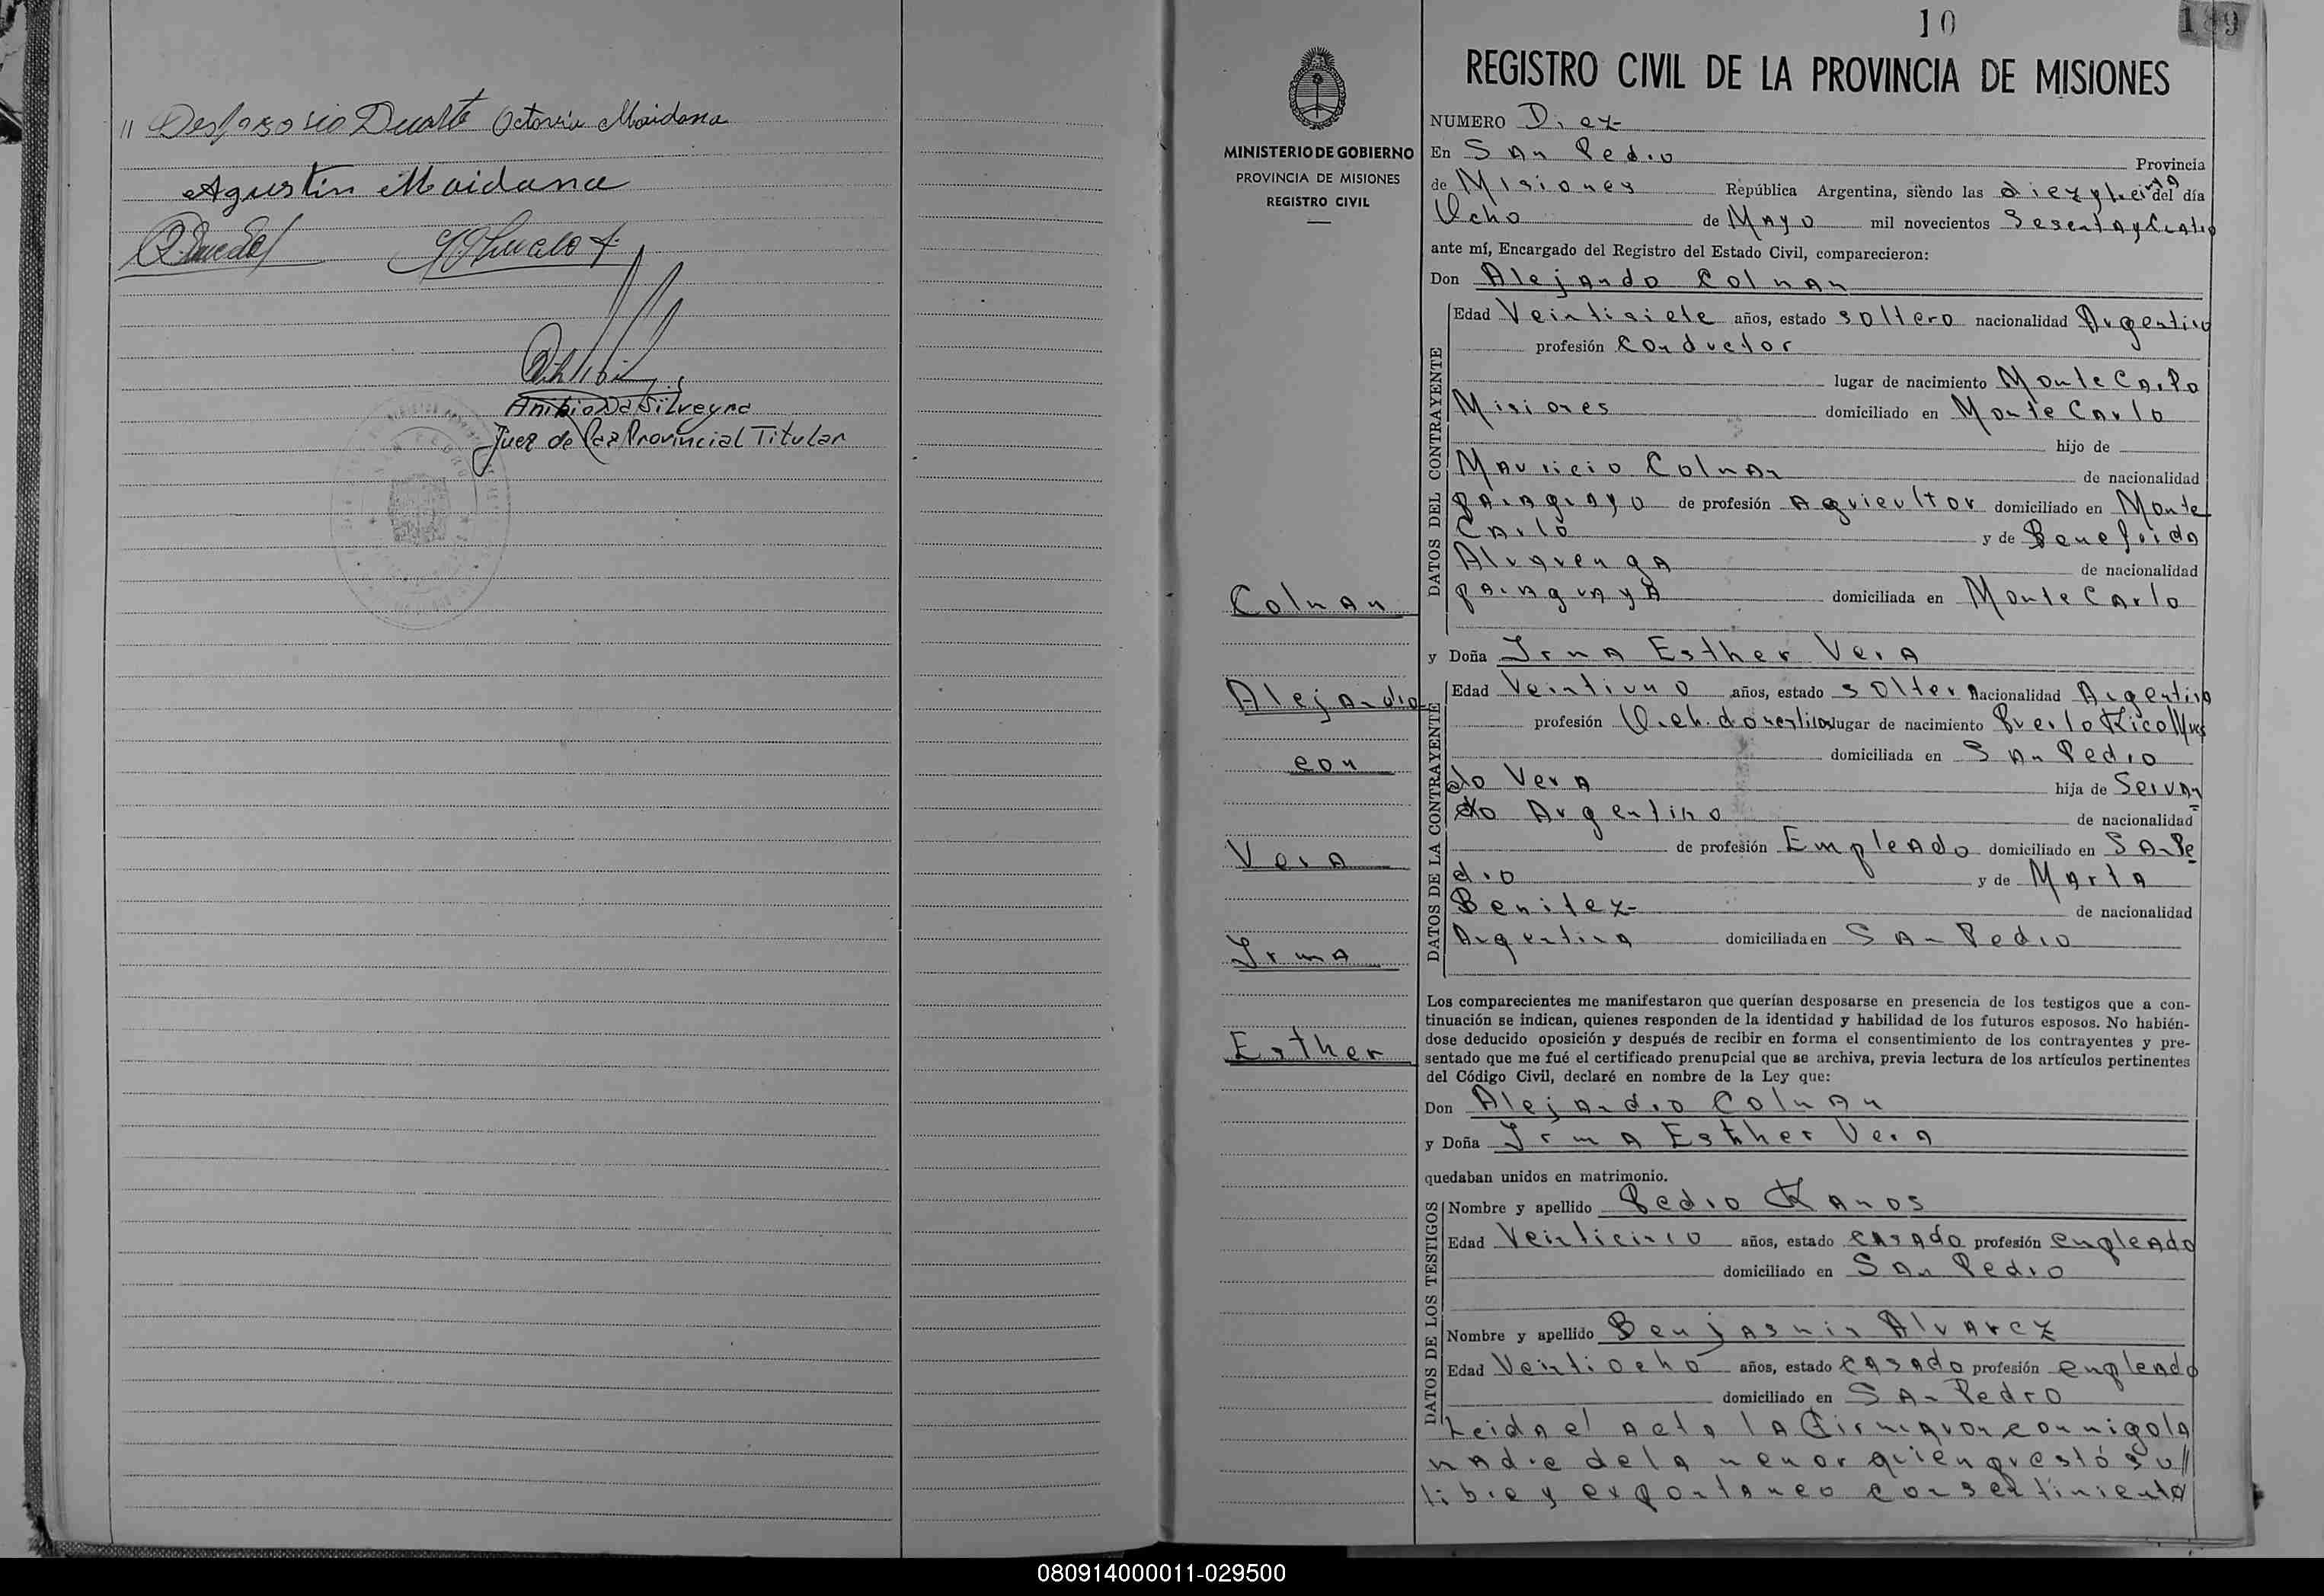 11 Desposorio Duarte Octavia Maidana
Agustin Maidana
Anibio Da Silveyra
Juez de Paz Provincial Titular
10
189
REGISTRO CIVIL DE LA PROVINCIA DE MISIONES
MINISTERIO DE GOBIERNO
PROVINCIA DE MISIONES
REGISTRO CIVIL
Colman
Alejandro
con
Vera
Irma
Esther
NUMERO Diez
En San Pedro Provincia
de Misiones República Argentina, siendo las del día
Ocho de Mayo mil novecientos Sesenta y Cuatro
ante mí, Encargado del Registro del Estado Civil, comparecieron:
Don Alejando Colman
DATOS DEL CONTRAYENTE
Edad Veintisiete años, estado soltero nacionalidad Argentino
profesión Conductor
lugar de nacimiento Monte Carlo
Misiones domiciliado en Monte Carlo
hijo de
Mauricio Colman de nacionalidad
paraguayo de profesión Agricultor domiciliado en Monte
Carlo y de
Alvarenga de nacionalidad
paraguaya domiciliada en Monte Carlo
y Doña Irma Esther Vera
DATOS DE LA CONTRAYENTE
Edad Veintiuno años, estado solter nacionalidad Argentina
profesión Queh. domesticos lugar de nacimiento Puerto Rico
domiciliada en San Pedro
do Vera hija de Servan
do Argentino de nacionalidad
de profesión Empleado domiciliado en San Pe
dro y de Marta
Benitez de nacionalidad
Argentina domiciliada en San Pedro
Los comparecientes me manifestaron que querían desposarse en presencia de los testigos que a con-
tinuación se indican, quienes responden de la identidad y habilidad de los futuros esposos. No habién-
dose deducido oposición y después de recibir en forma el consentimiento de los contrayentes y pre-
sentado que me fué el certificado prenupcial que se archiva, previa lectura de los artículos pertinentes
del Código Civil, declaré en nombre de la Ley que:
Don Alejandro Colman
y Doña Irma Esther Vera
quedaban unidos en matrimonio.
DATOS DE LOS TESTIGOS
Nombre y apellido Pedro Ramos
Edad Veinticinco años, estado casado profesión empleado
domiciliado en San Pedro
Nombre y apellido Benjasmin Alvarez
Edad Veintiocho años, estado casado profesión empleado
domiciliado en San Pedro
Leida el acta la firmaron conmigo la
madre de la menor quien prestó su //
libre y expontaneo consentimiento
080914000011-029500